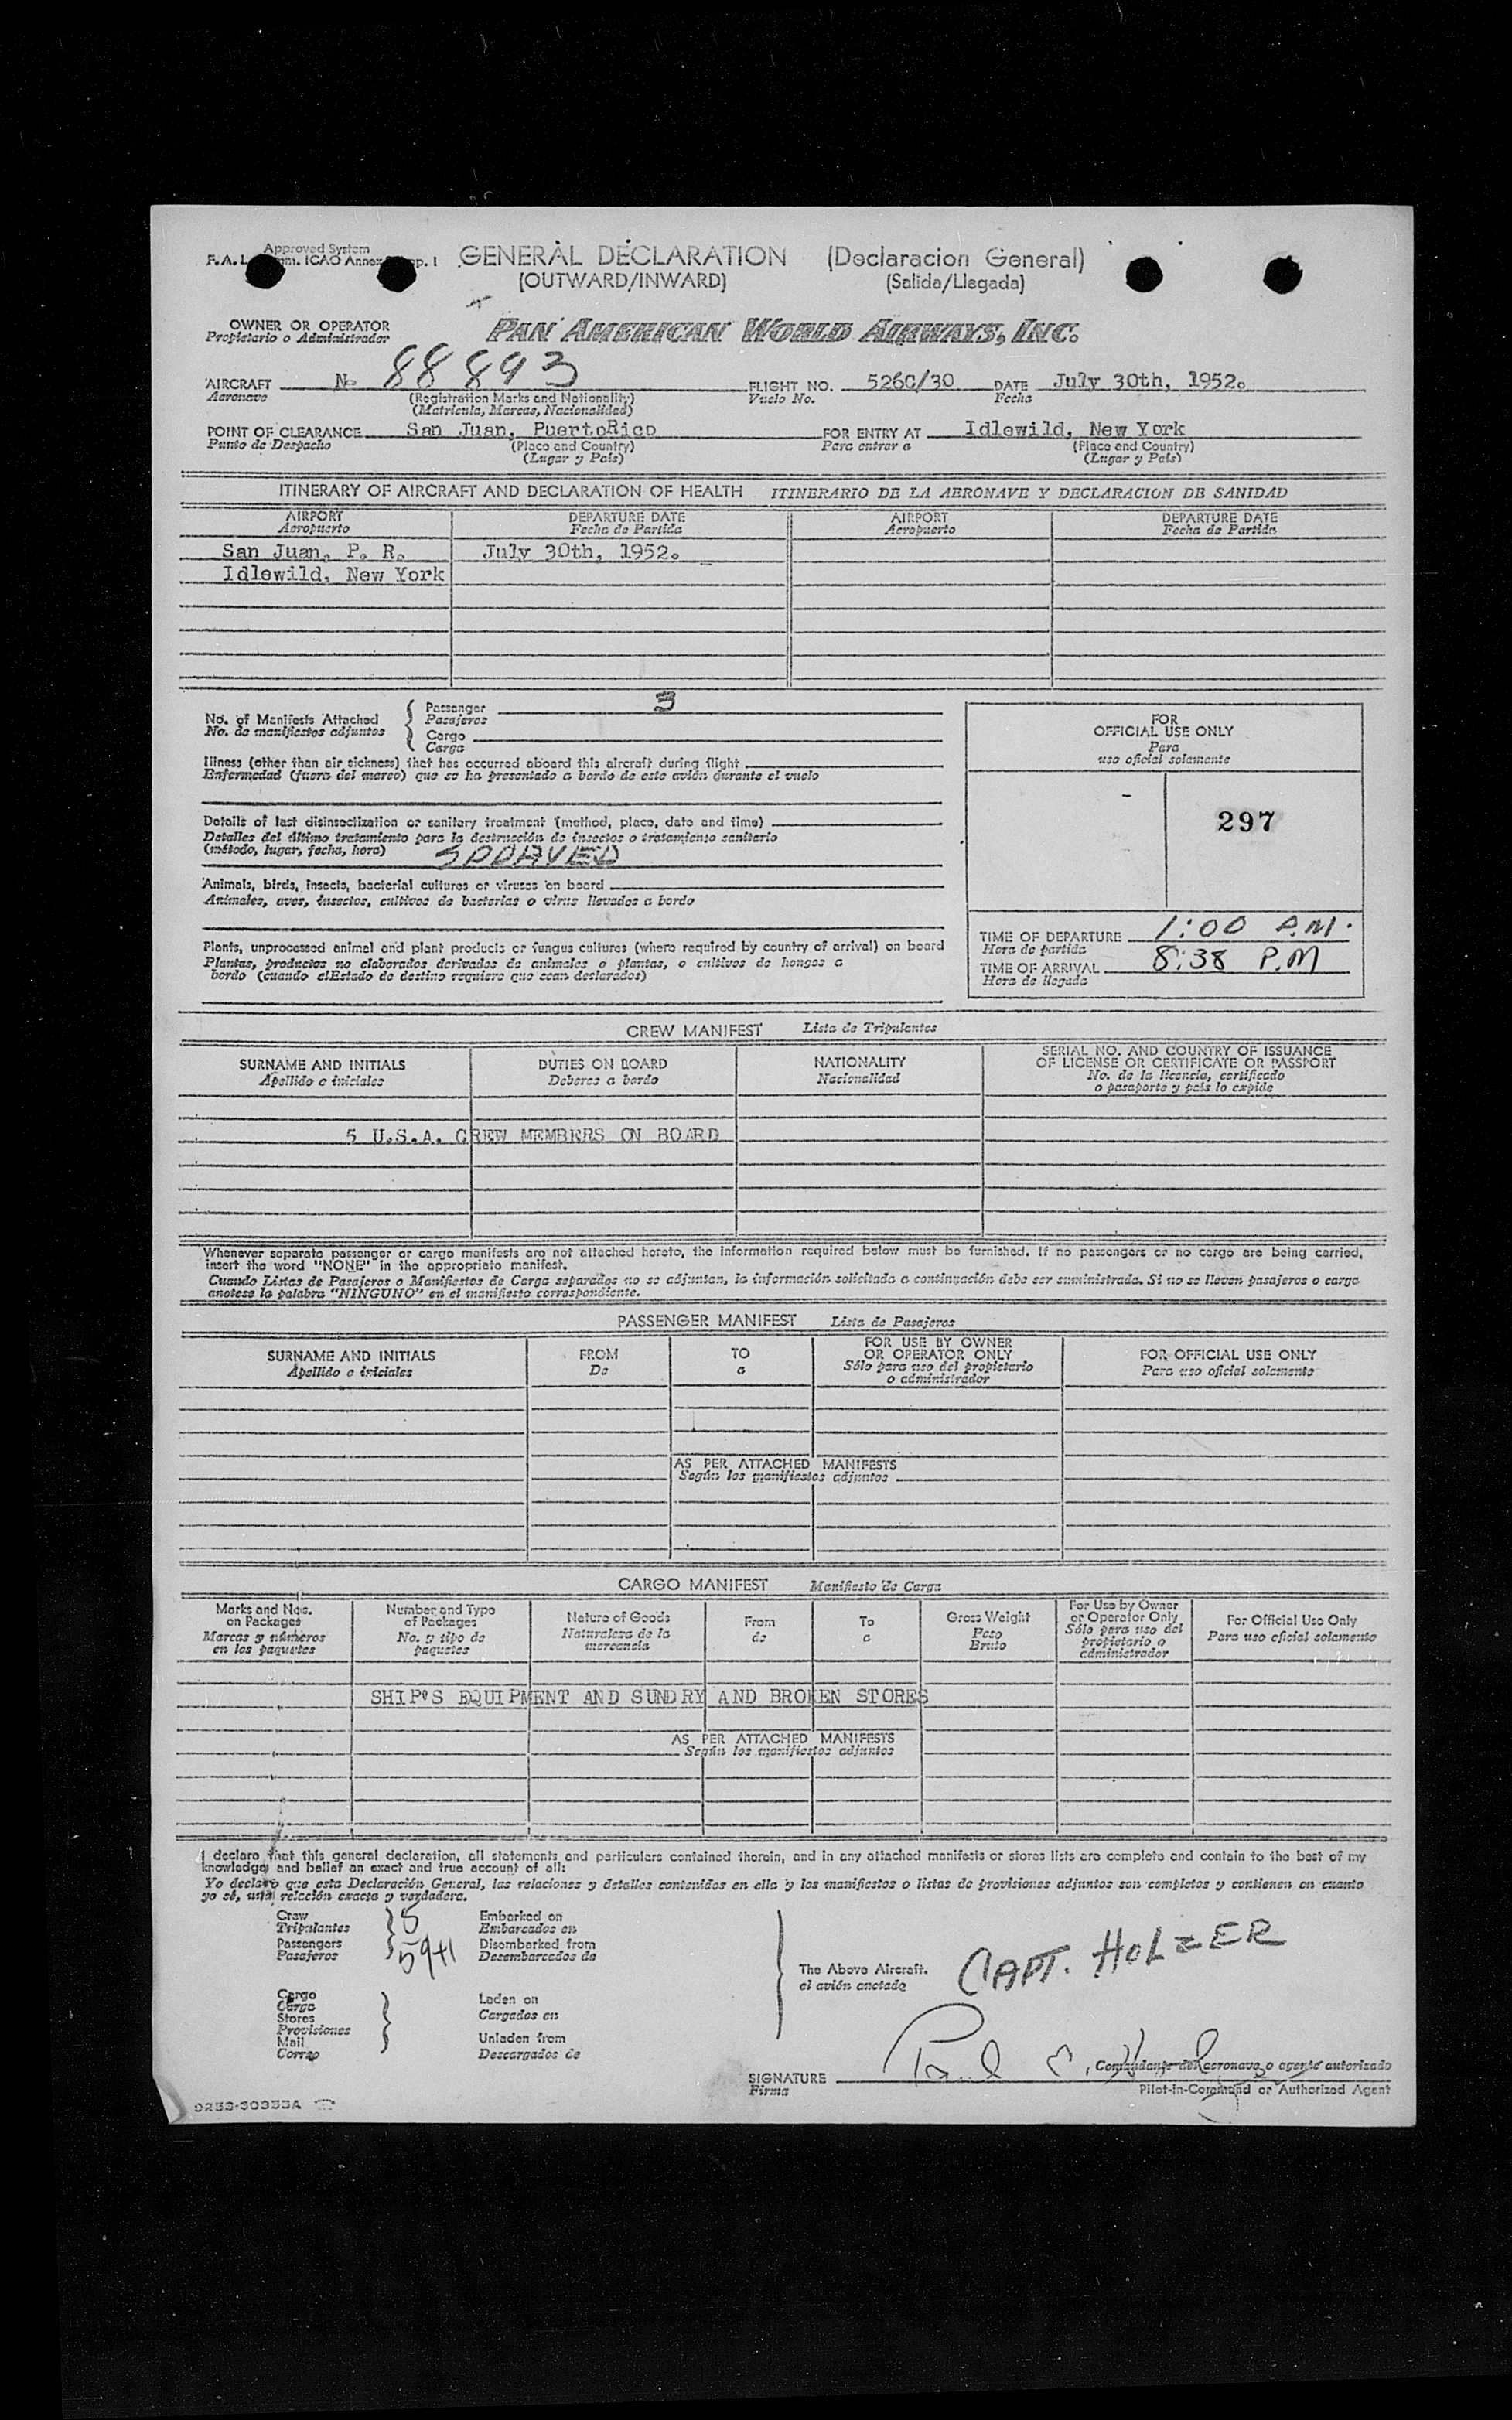 Approved System
GENERAL DECLARATION (Declaracion General)
F.A.L. ICAO Annex
(OUTWARD/INWARD) (Salida/Llegada)
OWNER OR OPERATOR
Propietario o Administrador
PAN AMERICAN WORLD AIRWAYS, INC.
AIRCRAFT N- 88893 FLIGHT NO. 526C/30 DATE July 30th, 1952.
Aeronave (Registration Marks and Nationality) Vuelo No. Fecha
(Matricula, Marcas, Nacionalidad)
POINT OF CLEARANCE San Juan, PuertoRico FOR ENTRY AT Idlewild, New York
Punto de Despacho (Place and Country) Para entrar a (Place and Country)
(Lugar y País) (Lugar y País)
ITINERARY OF AIRCRAFT AND DECLARATION OF HEALTH ITINERARIO DE LA AERONAVE Y DECLARACION DE SANIDAD
AIRPORT DEPARTURE DATE AIRPORT DEPARTURE DATE
Aeropuerto Fecha de Partida Aeropuerto Fecha de Partida
San Juan, P. R. July 30th, 1952.
Idlewild, New York
No. of Manifests Attached
No. de manifiestos adjuntos
Passenger 3
Pasajeros
Cargo
Carga
Illness (other than air sickness) that has occurred aboard this aircraft during flight
Enfermedad (fuera del mareo) que se ha presentado a bordo de este avión durante el vuelo
Details of last disinsectization or sanitary treatment (method, place, date and time)
Detalles del último tratamiento para la destrucción de insectos o tratamiento sanitario
(método, lugar, fecha, hora) SPRAYED
Animals, birds, insects, bacterial cultures or viruses on board
Animales, aves, insectos, cultivos de bacterias o virus llevados a bordo
Plants, unprocessed animal and plant products or fungus cultures (where required by country of arrival) on board
Plantas, productos no elaborados derivados de animales o plantas, o cultivos de hongos a
bordo (cuando elEstado de destino requiere que sean declarados)
FOR
OFFICIAL USE ONLY
Para
uso oficial solamente
297
TIME OF DEPARTURE 1:00 P.M.
Hora de partida
TIME OF ARRIVAL 8:38 P.M
Hora de llegada
CREW MANIFEST Lista de Tripulantes
SURNAME AND INITIALS DUTIES ON BOARD NATIONALITY SERIAL NO. AND COUNTRY OF ISSUANCE
OF LICENSE OR CERTIFICATE OR PASSPORT
Apellido e iniciales Deberes a bordo Nacionalidad No. de la licencia, certificado
o pasaporte y país lo expide
5 U.S.A. CREW MEMBERS ON BOARD
Whenever separate passenger or cargo manifests are not attached hereto, the information required below must be furnished. If no passengers or no cargo are being carried,
insert the word "NONE" in the appropriate manifest.
Cuando Listas de Pasajeros o Manifiestos de Carga separados no se adjuntan, la información solicitada a continuación debe ser suministrada. Si no se lleven pasajeros o carga
anotese la palabra "NINGUNO" en el manifiesto correspondiente.
PASSENGER MANIFEST Lista de Pasajeros
SURNAME AND INITIALS FROM TO FOR USE BY OWNER
OR OPERATOR ONLY FOR OFFICIAL USE ONLY
Apellido e iniciales De a Sólo para uso del propietario
o administrador Para uso oficial solamente
AS PER ATTACHED MANIFESTS
Según los manifiestos adjuntos
CARGO MANIFEST Manifiesto de Carga
Marks and Nos.
on Packages
Marcas y números
en los paquetes
Number and Type
of Packages
No. y tipo de
paquetes
Nature of Goods
Naturaleza de la
mercancía
From
de
To
a
Gross Weight
Peso
Bruto
For Use by Owner
or Operator Only
Sólo para uso del
propietario o
administrador
For Official Use Only
Para uso oficial solamente
SHIP'S EQUIPMENT AND SUNDRY AND BROKEN STORES
AS PER ATTACHED MANIFESTS
Según los manifiestos adjuntos
I declare that this general declaration, all statements and particulars contained therein, and in any attached manifests or stores lists are complete and contain to the best of my
knowledge and belief an exact and true account of all:
Yo declaro que esta Declaración General, las relaciones y detalles contenidos en ella y los manifiestos o listas de provisiones adjuntos son completos y contienen en cuanto
yo sé, una relación exacta y verdadera.
Crew 5 Embarked on
Tripulantes Embarcados en
Passengers 59+1 Disembarked from
Pasajeros Desembarcados de
The Above Aircraft.
el avión anotado
CAPT. HOLZER
Cargo
Carga
Stores
Provisiones
Mail
Correo
Laden on
Cargados en
Unladen from
Descargados de
SIGNATURE
Firma
Comandante del aeronave o agente autorizado
Pilot-in-Command or Authorized Agent